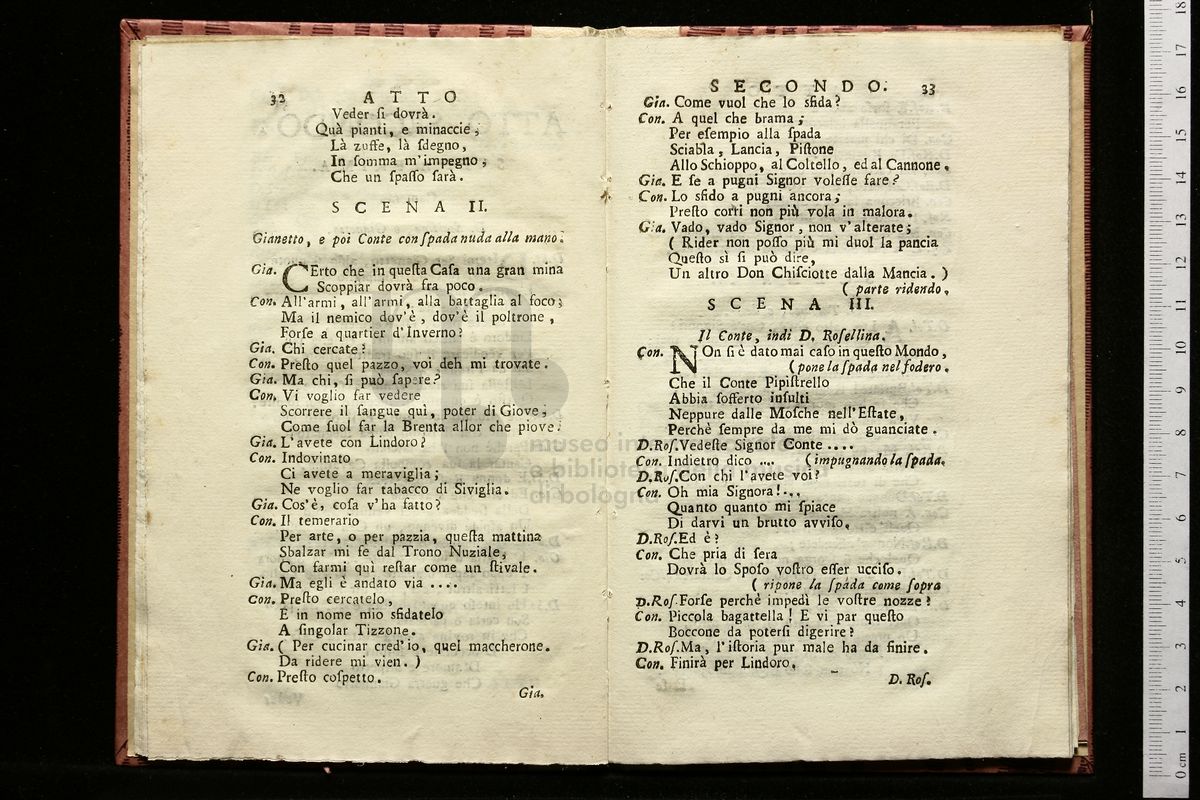 32 ATTO
Veder ſi dovrà.
Quà pianti, e minaccie,
Là zuffe, là ſdegno,
In ſomma m'impegno,
Che un ſpaſſo ſarà.
SCENA II.
Gianetto, e poi Conte con ſpada nuda alla mano.
Gia. CErto che in queſta Caſa una gran mina
Scoppiar dovrà fra poco.
Con. All'armi, all'armi, alla battaglia al foco;
Ma il nemico dov'è, dov'è il poltrone,
Forſe a quartier d'Inverno?
Gia. Chi cercate?
Con. Preſto quel pazzo, voi deh mi trovate.
Gia. Ma chi, ſi può ſapere?
Con. Vi voglio far vedere
Scorrere il ſangue qui, poter di Giove,
Come ſuol far la Brenta allor che piove.
Gia. L'avete con Lindoro?
Con. Indovinato
Ci avete a meraviglia;
Ne voglio far tabacco di Siviglia.
Gia. Cos'è, coſa v'ha fatto?
Con. Il temerario
Per arte, o per pazzia, queſta mattina
Sbalzar mi fe dal Trono Nuziale,
Con farmi quì reſtar come un ſtivale.
Gia. Ma egli è andato via ....
Con. Preſto cercatelo,
E in nome mio sfidatelo
A ſingolar Tizzone.
Gia. ( Per cucinar cred'io, quel maccherone.
Da ridere mi vien. )
Con. Preſto coſpetto.
Gia.
SECONDO. 33
Gia. Come vuol che lo sfida?
Con. A quel che brama;
Per eſempio alla ſpada
Sciabla, Lancia, Piſtone
Allo Schioppo, al Coltello, ed al Cannone.
Gia. E ſe a pugni Signor voleſſe fare?
Con. Lo sfido a pugni ancora;
Preſto corri non più vola in malora.
Gia. Vado, vado Signor, non v'alterate;
( Rider non poſſo più mi duol la pancia
Queſto sì ſi può dire,
Un altro Don Chiſciotte dalla Mancia. )
( parte ridendo.
SCENA III.
Il Conte, indi D. Roſellina.
Con. NOn ſi è dato mai caſo in queſto Mondo,
(pone la ſpada nel fodero.
Che il Conte Pipiſtrello
Abbia ſofferto inſulti
Neppure dalle Moſche nell'Eſtate,
Perchè ſempre da me mi dò guanciate.
D.Roſ.Vedeſte Signor Conte ....
Con. Indietro dico .... (impugnando la ſpada.
D.Roſ.Con chi l'avete voi?
Con. Oh mia Signora!...
Quanto quanto mi ſpiace
Di darvi un brutto avviſo.
D.Roſ.Ed è?
Con. Che pria di ſera
Dovrà lo Spoſo voſtro eſſer ucciſo.
( ripone la ſpada come ſopra
D.Roſ.Forſe perchè impedì le voſtre nozze?
Con. Piccola bagattella! E vi par queſto
Boccone da poterſi digerire?
D.Roſ.Ma, l'iſtoria pur male ha da finire.
Con. Finirà per Lindoro.
D. Roſ.